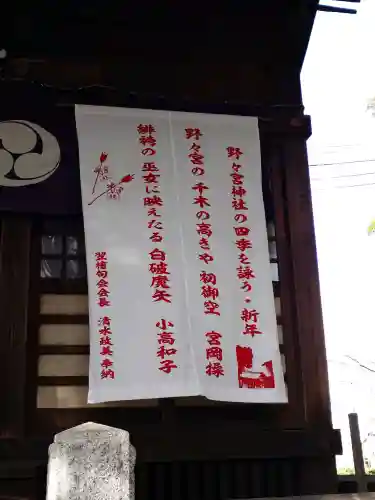 野々宮神社の四季を詠う・新年
野々宮の 千木の高きや 初御空 宮岡操
緋袴の 巫女に映えたる 白破魔矢 小高和子
翌檜句会会長 清水政美奉納